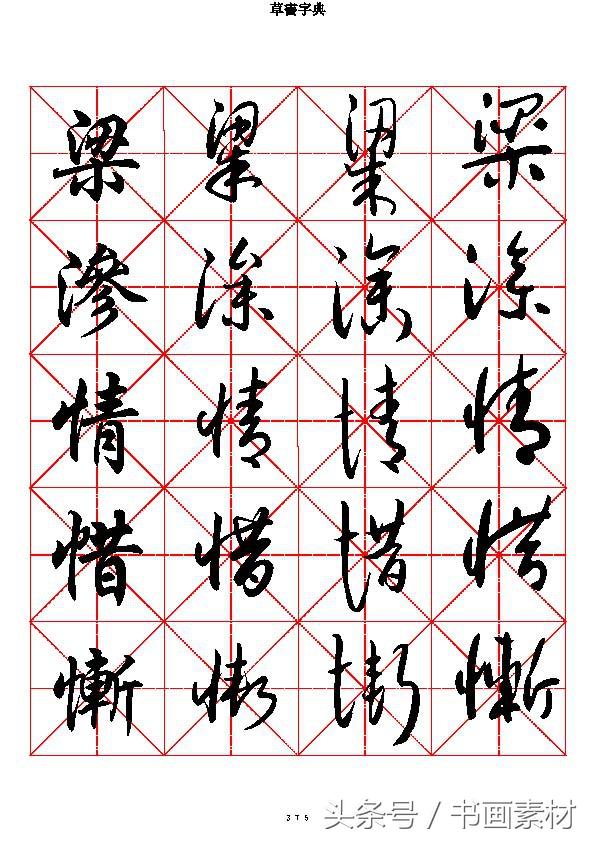 草書字典
梁 梁 梁 梁
滲 滲 滲 滲
情 情 情 情
惜 惜 惜 惜
慚 慚 慚 慚
375
头条号 / 书画素材